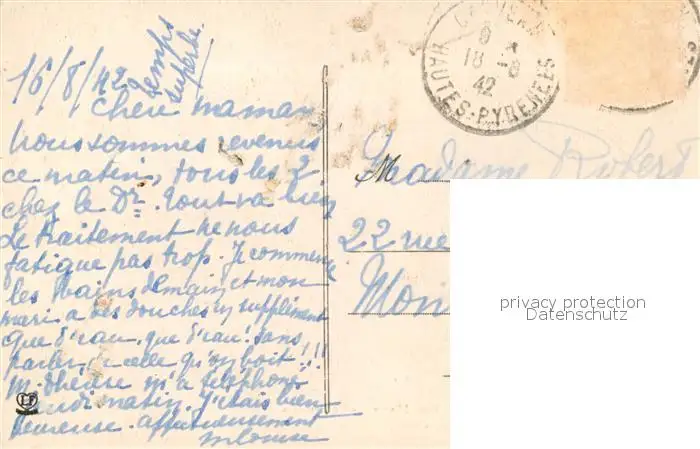 16/8/42
temps
superbe
Chère maman
Nous sommes revenus
ce matin, tous les 2
chez le Dr. Tout va bien
Le traitement ne nous
fatigue pas trop. Je commence
les bains demain et mon
mari a des douches en supplément
Que d'eau, que d'eau! sans
parler, de celle qu'on boit!!!
M. Thérèse m'a téléphoné
matin. J'étais bien
heureuse. affectueusement
HAUTES-PYRENEES
18 -8
42
Madame Robert
22 rue
privacy protection
Datenschutz